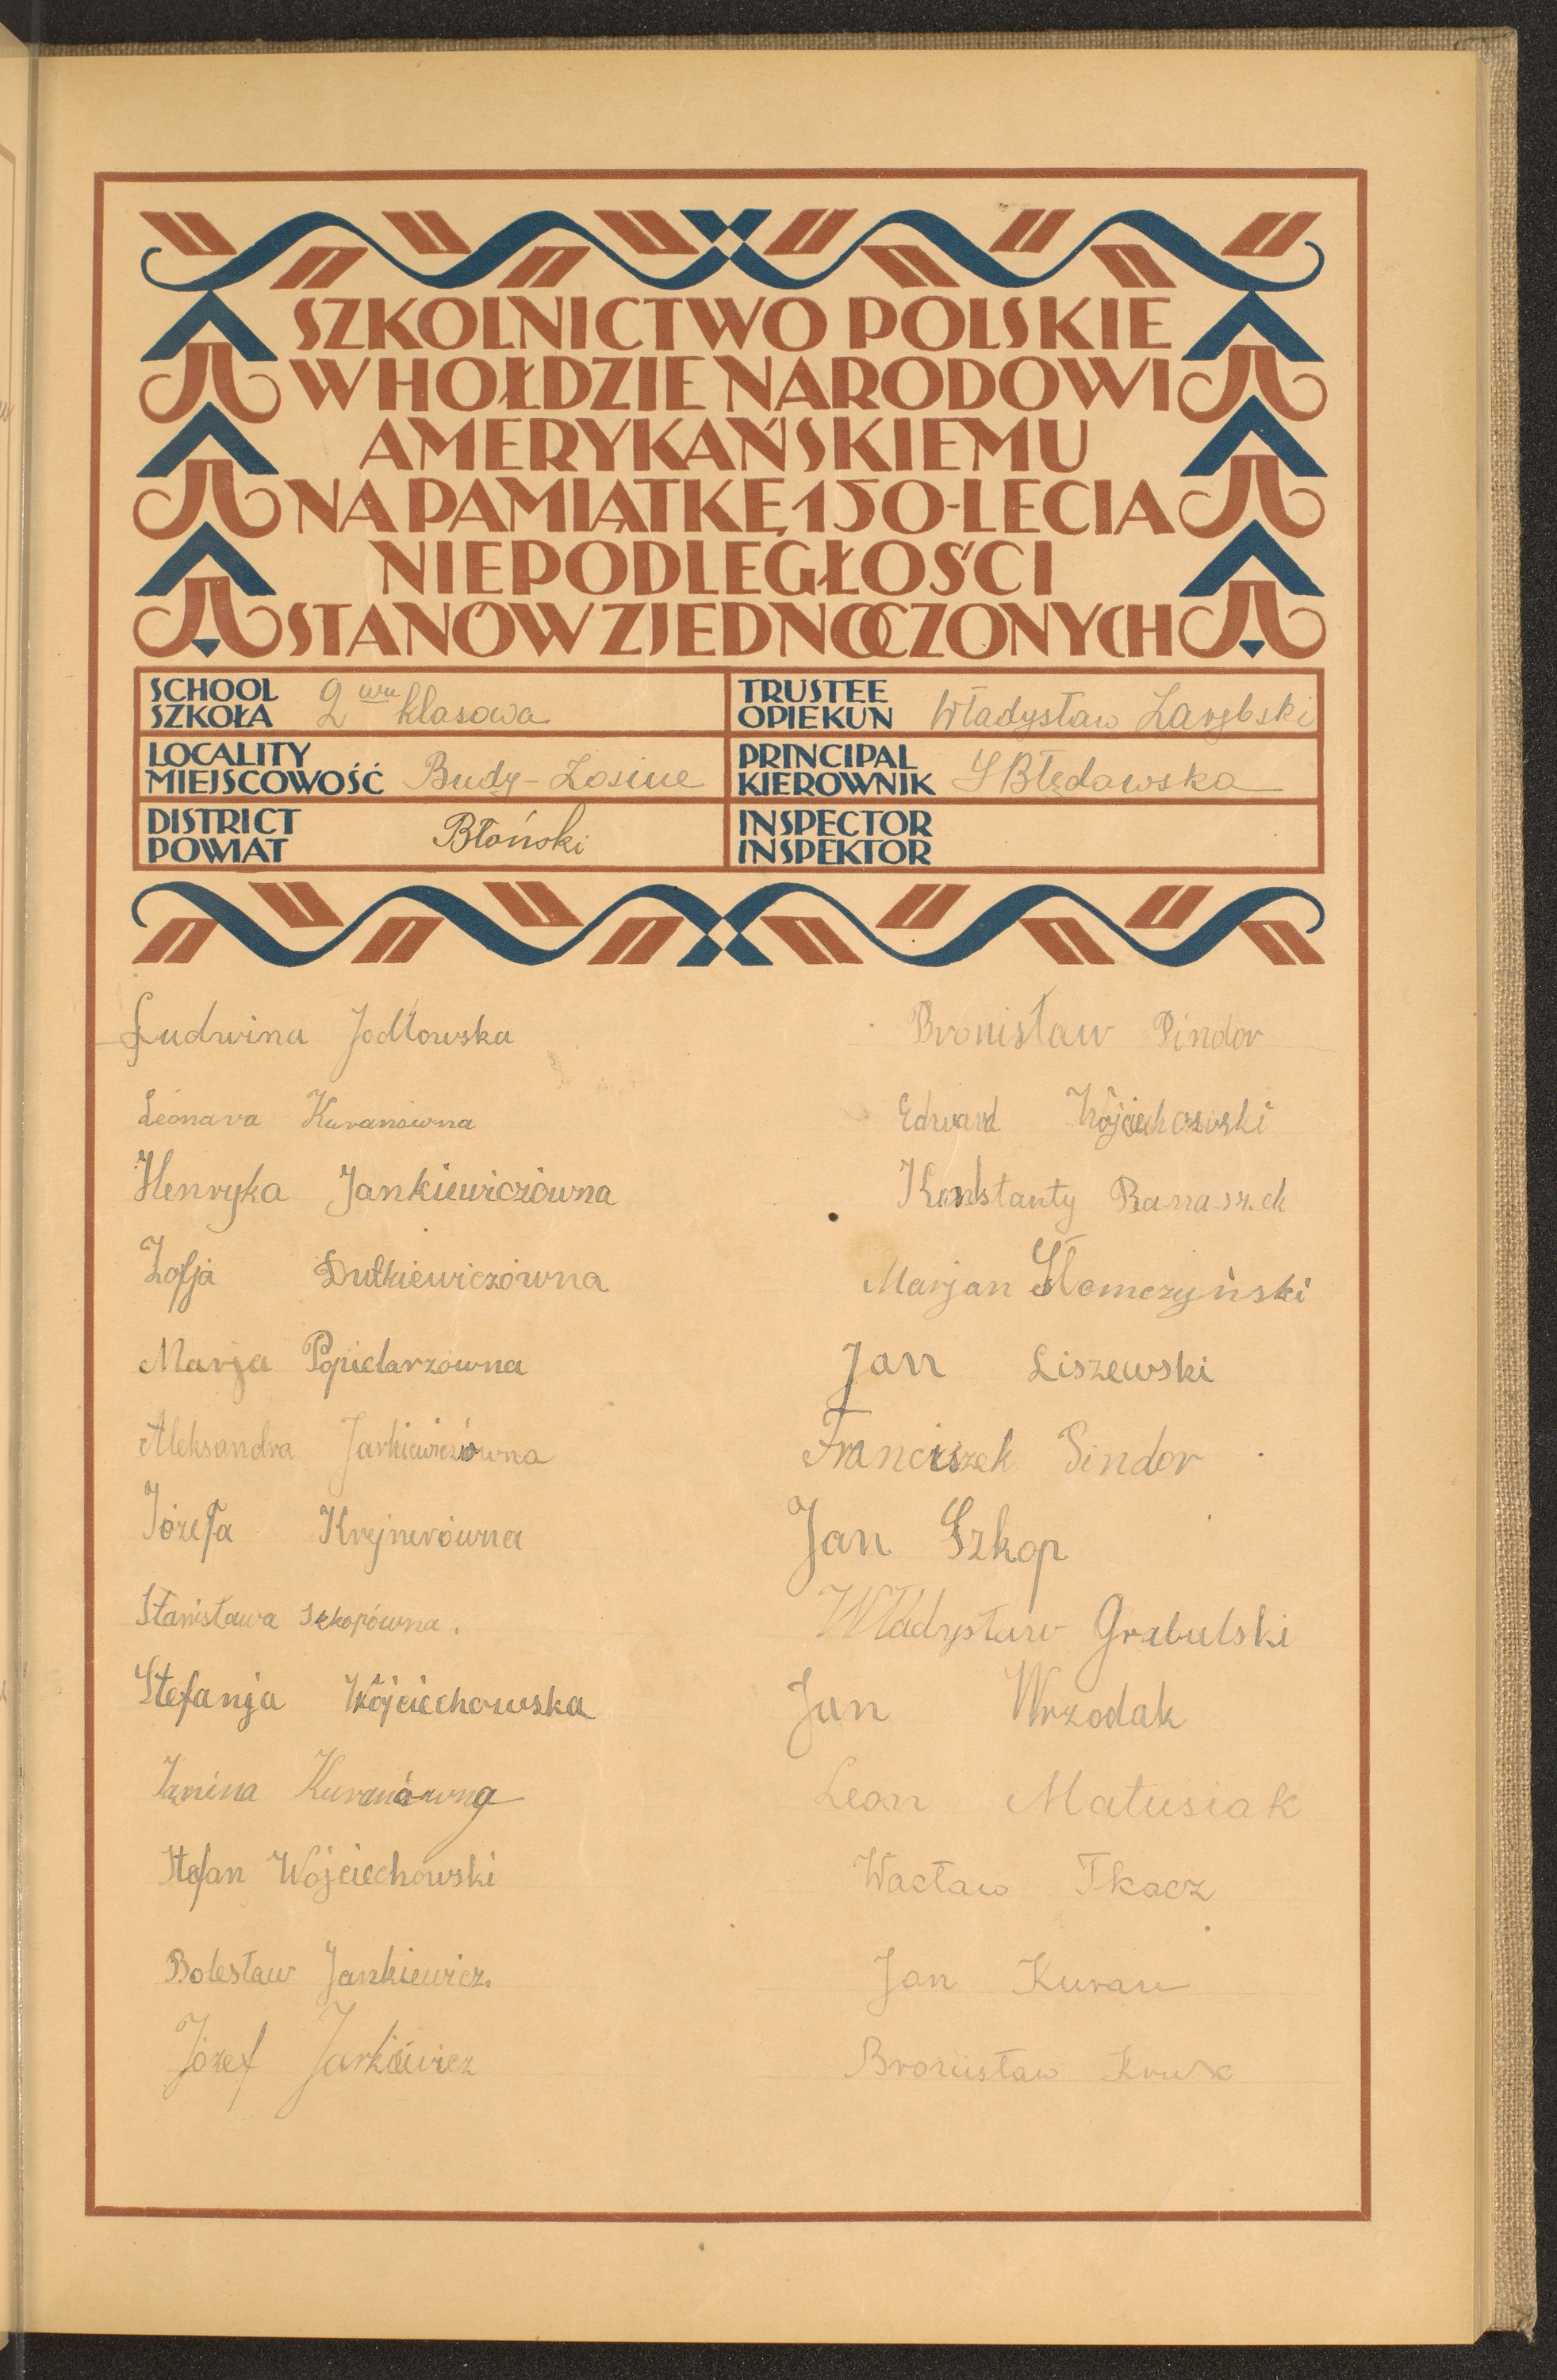 SZKOLNICTWO POLSKIE
W HOŁDZIE NARODOWI
AMERYKAŃSKIEMU
NA PAMIĄTKĘ 150-LECIA
NIEPODLEGŁOŚCI
STANÓW ZJEDNOCZONYCH
SCHOOL
SZKOŁA 2 wu klasowa
TRUSTEE
OPIEKUN Władysław Zarębski
LOCALITY
MIEJSCOWOŚĆ Budy-Zosine
PRINCIPAL
KIEROWNIK S Błędowska
DISTRICT
POWIAT Błoński
INSPECTOR
INSPEKTOR
Ludwina Jodłowska
Leonara Kuranówna
Henryka Jankiewiczówna
Zofja Dutkiewiczówna
Marja Popielarzówna
Aleksandra Jarkiewiczówna
Józefa Krejnerówna
Stanisława Szkopówna.
Stefanja Wójciechowska
Janina Kuranówna
Stefan Wojciechowski
Bolesław Jankiewicz.
Józef Jarkiewicz
Bronisław Pindor
Edward Wójciechowski
Konstanty Banaszek
Marjan Słomczyński
Jan Liszewski
Franciszek Pindor
Jan Szkop
Władysław Grabulski
Jan Wrzodak
Leon Matusiak
Wacław Tkacz
Jan Kuran
Bronisław Kruk